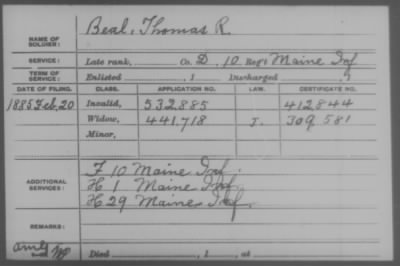 NAME OF SOLDIER: Beal, Thomas R.
SERVICE: Late rank, Co. D, 10 Reg't Maine Inf
TERM OF SERVICE: Enlisted , 1 Discharged , 1
DATE OF FILING. CLASS. APPLICATION NO. LAW. CERTIFICATE NO.
1885 Feb. 20 Invalid, 532885 412844
Widow, 441,718 J. 309 581
Minor,
ADDITIONAL SERVICES: F 10 Maine Inf.
H 1 Maine Inf.
H 29 Maine Inf.
REMARKS:
Died , 1 , at